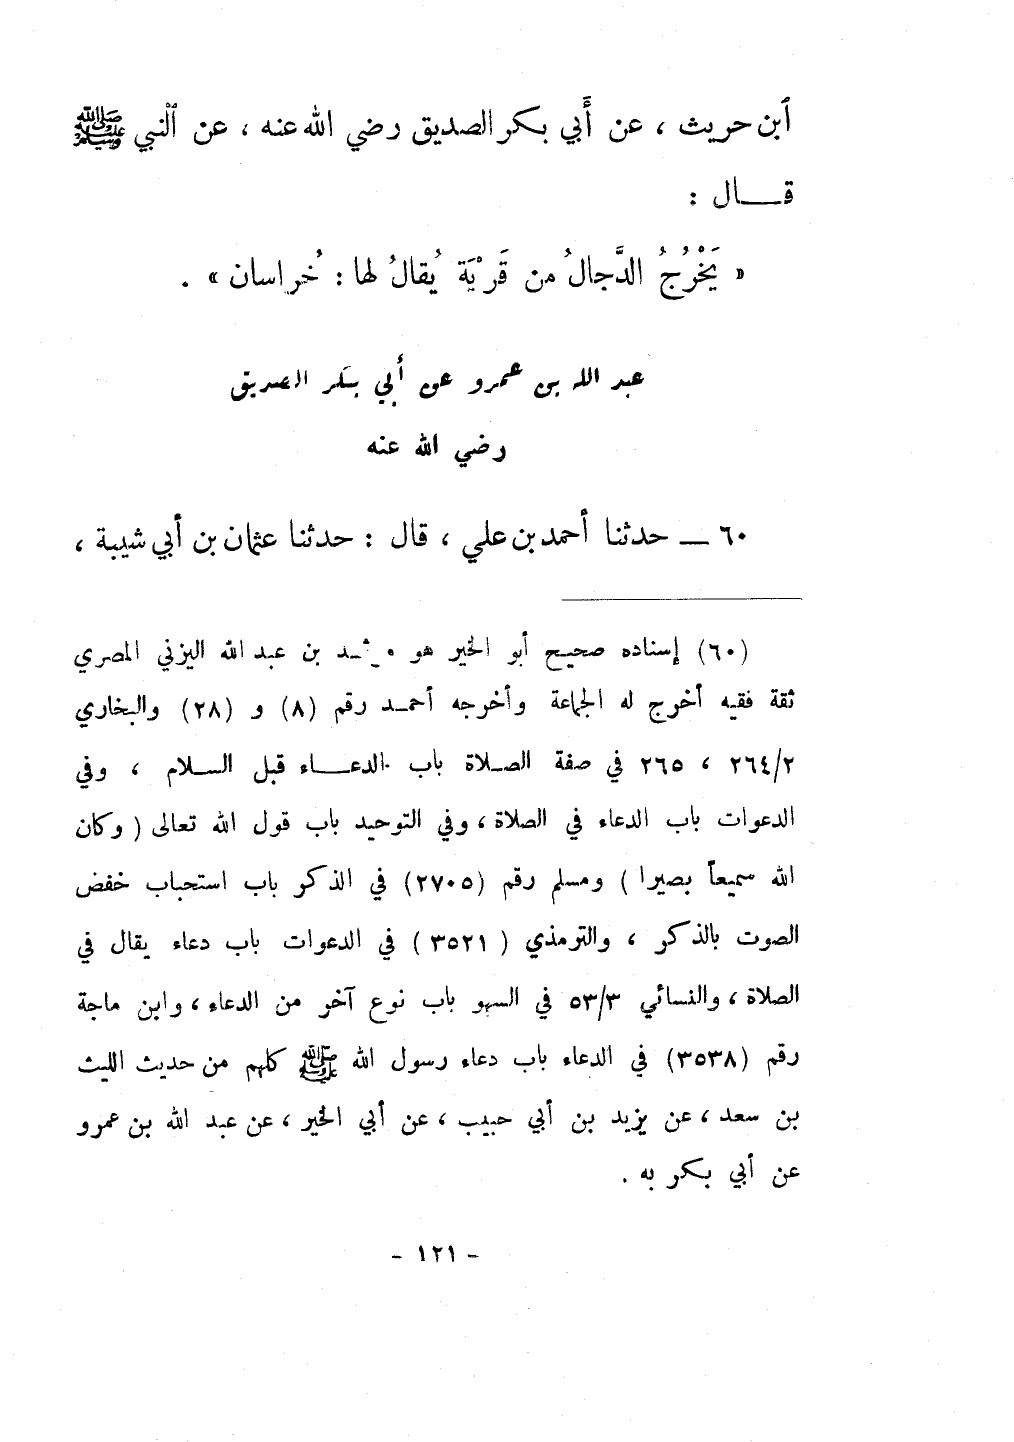 ٱبن حريث ، عن أَبي بكر الصديق رضي الله عنه ، عن ٱلنبي ﷺ
قـــال :
« يَخْرُجُ الدَّجالُ من قَرْيَة يُقالُ لها : خُراسان » .
عبد الله بن عمرو عن أَبي بكر الصديق
رضي الله عنه
٦٠ — حدثنا أَحمد بن علي ، قال : حدثنا عثمان بن أَبي شيبة ،
(٦٠) إسناده صحيح أبو الخير هو بن عبد الله اليزني المصري
ثقة فقيه أخرج له الجماعة وأخرجه أحمـد رقم (٨) و (٢٨) والبخاري
٢٦٤/٢ ، ٢٦٥ في صفة الصـلاة باب الدعـــاء قبل السـلام ، وفي
الدعوات باب الدعاء في الصلاة ، وفي التوحيد باب قول الله تعالى ( وكان
الله سميعاً بصيرا ) ومسلم رقم (٢٧٠٥) في الذكر باب استحباب خفض
الصوت بالذكر ، والترمذي ( ٣٥٢١ ) في الدعوات باب دعاء يقال في
الصلاة ، والنسائي ٥٣/٣ في السهو باب نوع آخر من الدعاء ، وابن ماجة
رقم (٣٥٣٨) في الدعاء باب دعاء رسول الله ﷺ كلهم من حديث الليث
بن سعد ، عن يزيد بن أبي حبيب ، عن أبي الخير ، عن عبد الله بن عمرو
عن أبي بكر به .
- ١٢١ -